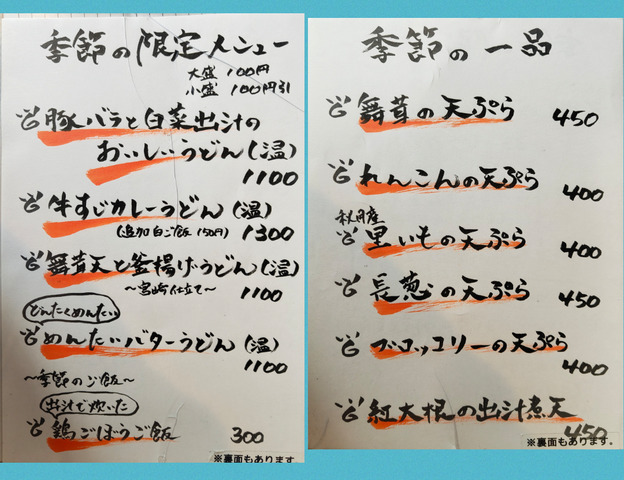 季節の限定メニュー
大盛 100円
小盛 100円引
豚バラと白菜出汁の
おいしいうどん(温)
1100
牛すじカレーうどん(温)
(追加白ご飯 150円) 1300
舞茸天と釜揚げうどん(温)
～宮崎仕立て～ 1100
どんたくめんたい
めんたいバターうどん(温)
1100
～季節のご飯～
出汁で炊いた
鶏ごぼうご飯 300
※裏面もあります
季節の一品
舞茸の天ぷら 450
れんこんの天ぷら
400
秋月産
里いもの天ぷら 400
長葱の天ぷら 450
ブロッコリーの天ぷら
400
紅大根の出汁煮天
450
※裏面もあります。